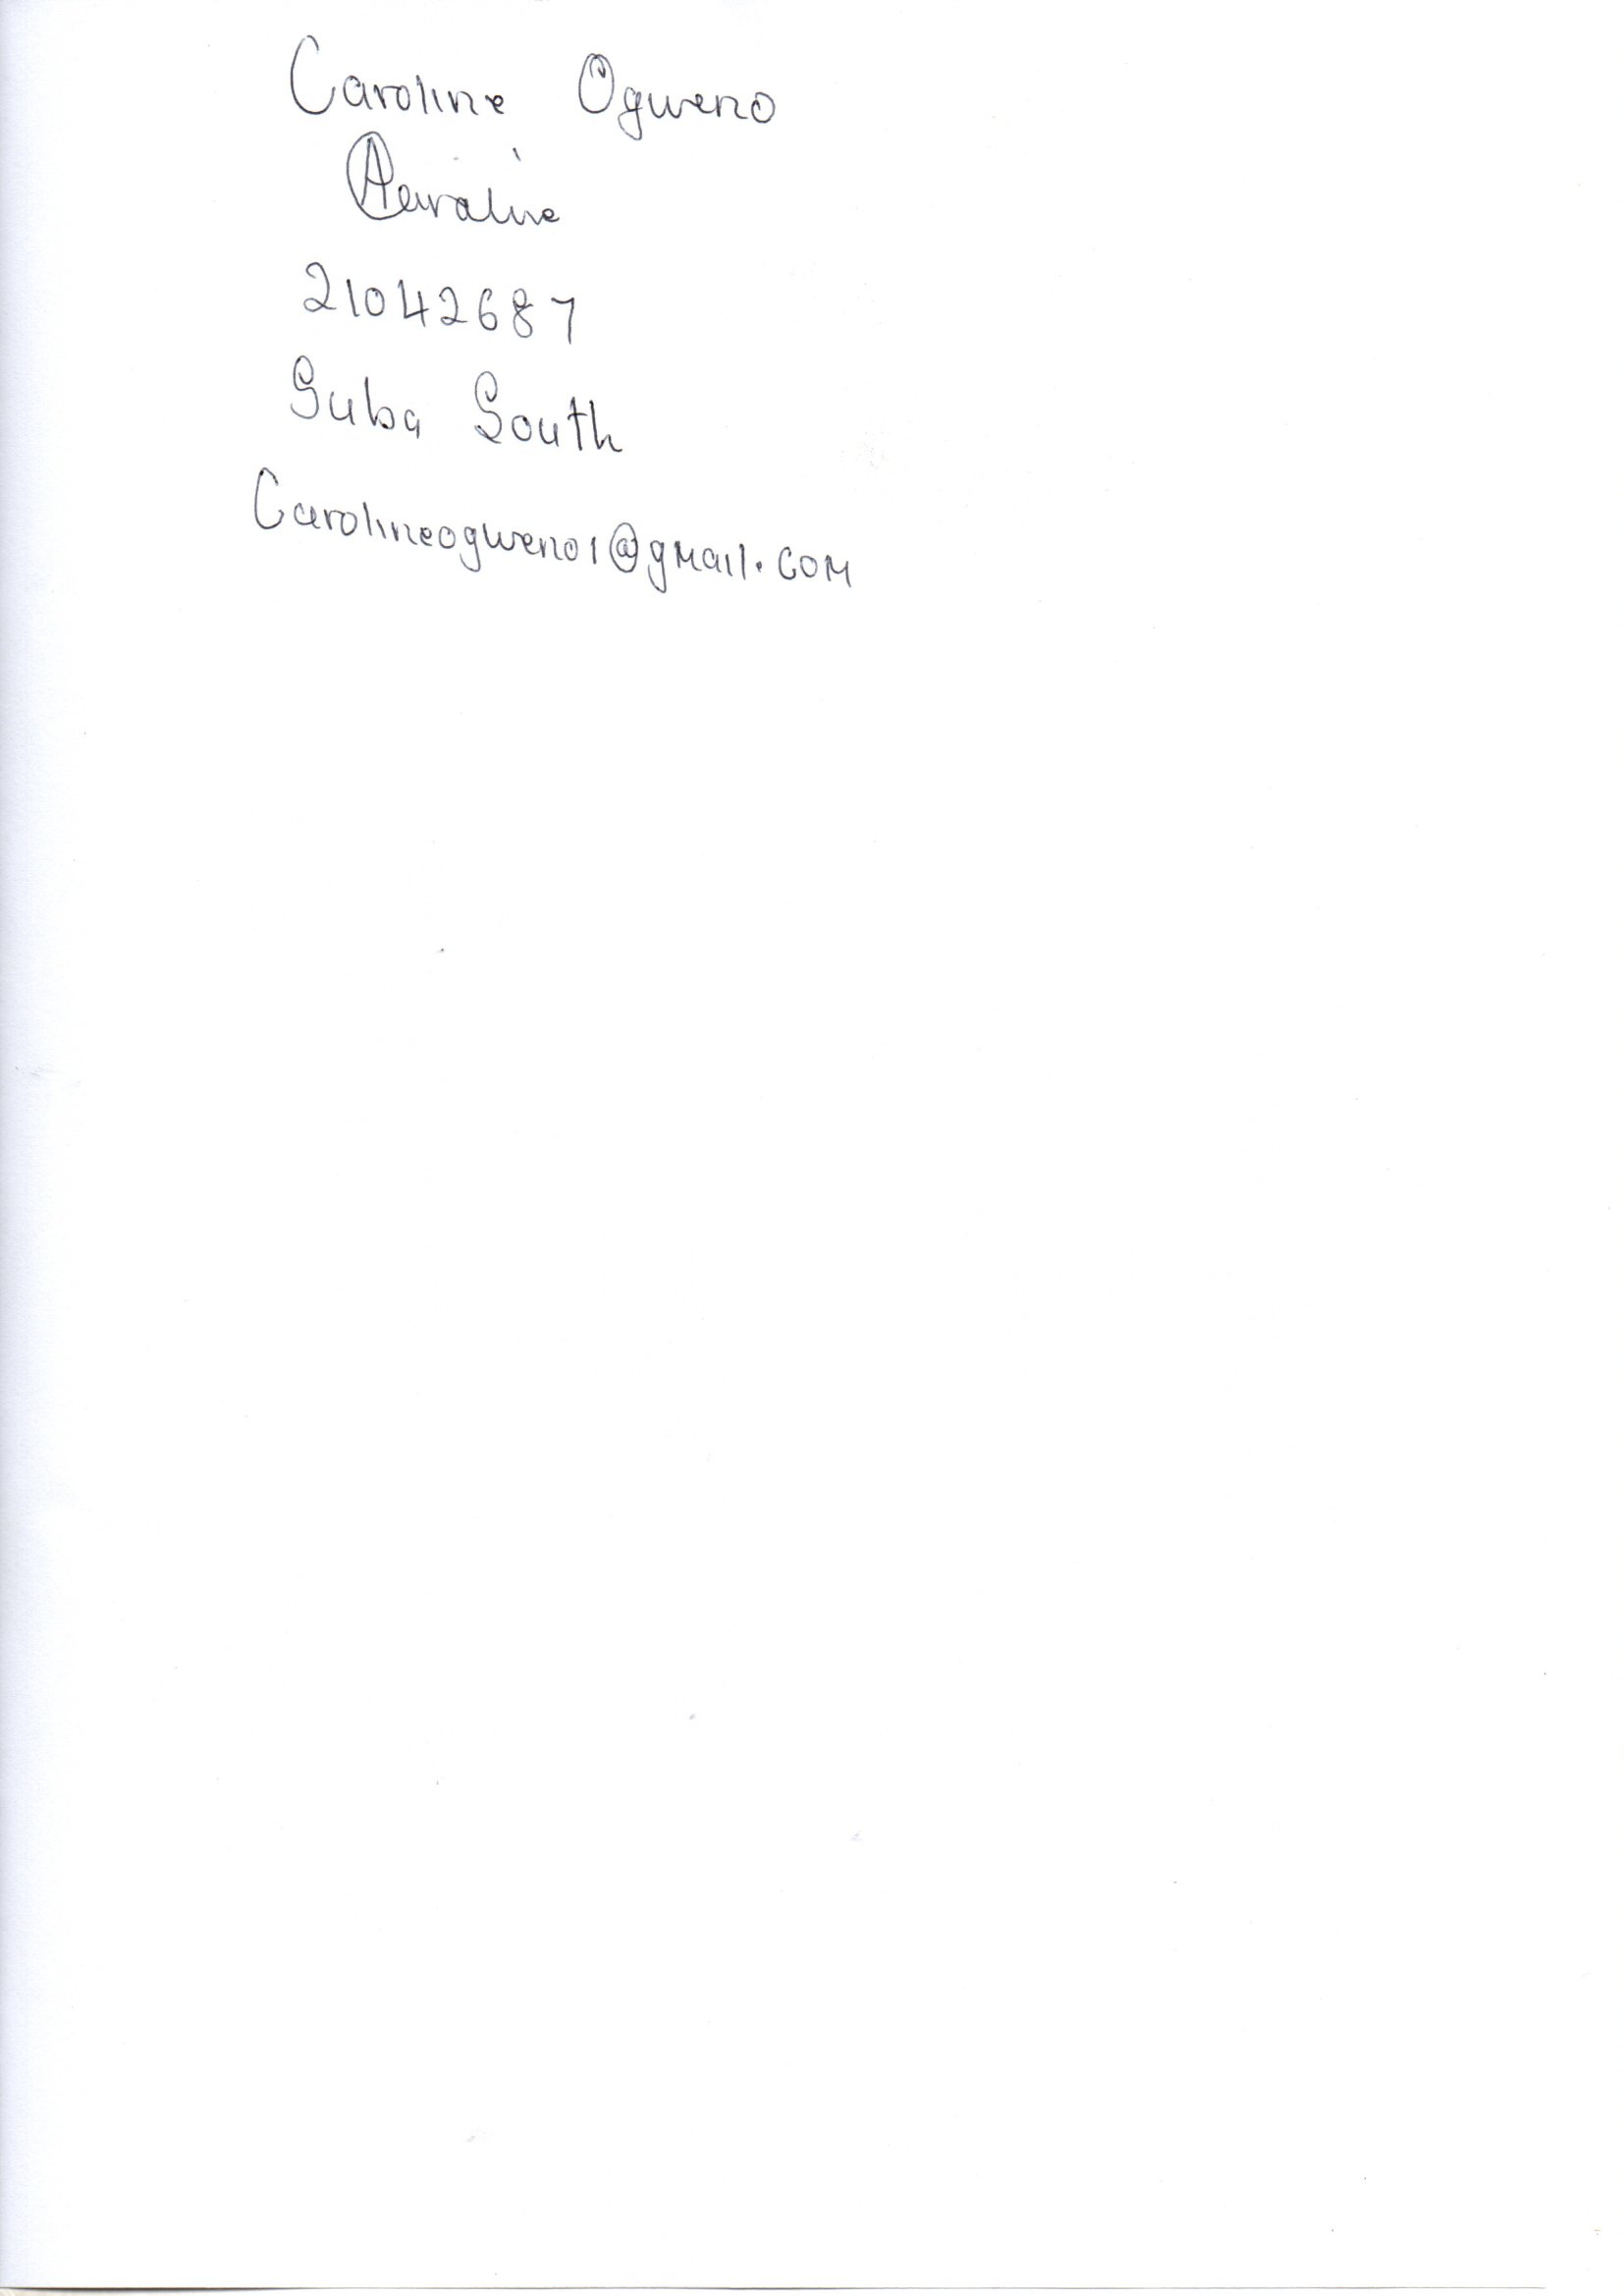 Caroline Ogweno
21042687
Suba South
Carolineogweno1@gmail.com